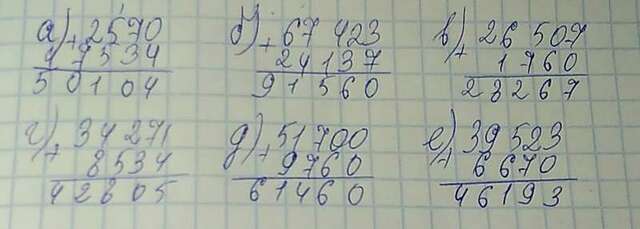 а) + 2570
47534
50104
б) + 67 423
24137
91560
в) + 26 507
1760
28267
г) + 34 271
8534
42805
д) + 51700
9760
61460
е) + 39 523
6670
46193